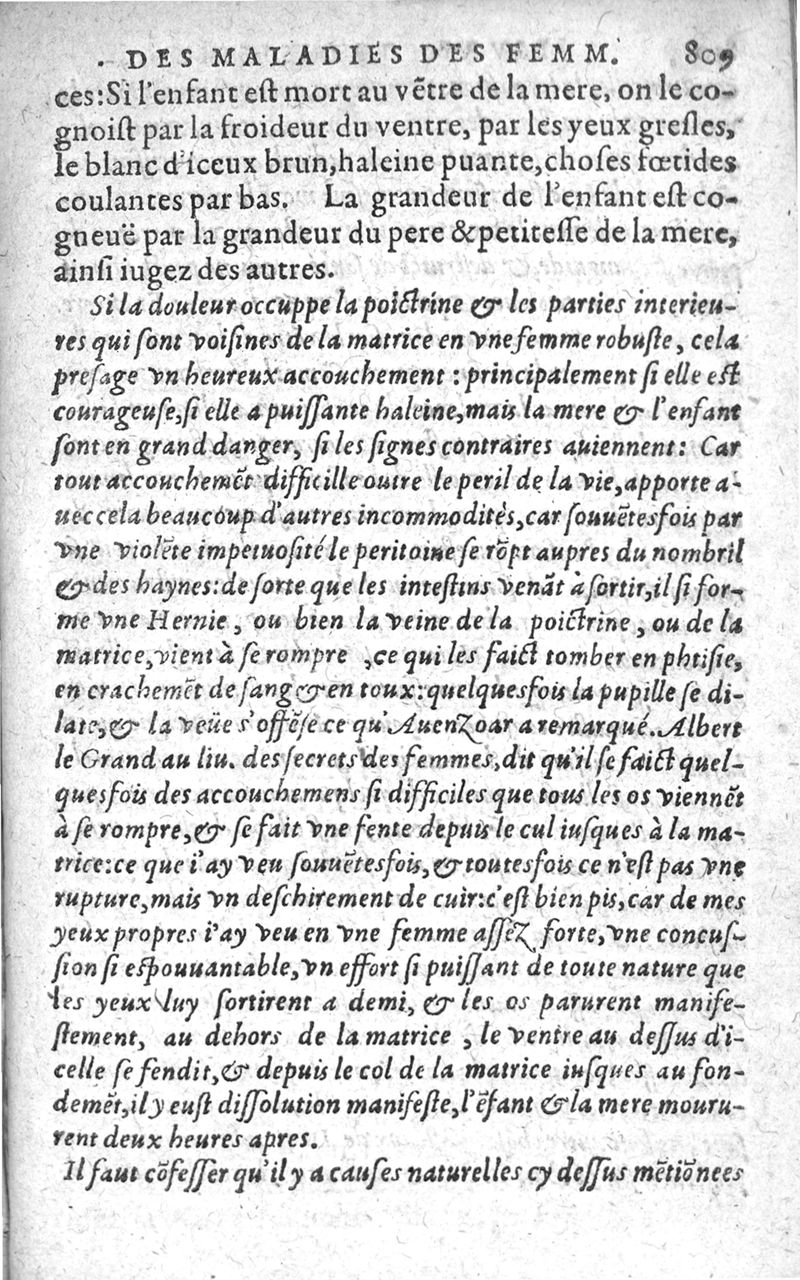 DES MALADIES DES FEMM. 809
ces: Si l'enfant eſt mort au vẽtre de la mere, on le co-
gnoiſt par la froideur du ventre, par les yeux greſles,
le blanc d'iceux brun, haleine puante, choſes fœtides
coulantes par bas. La grandeur de l'enfant eſt co-
gneuë par la grandeur du pere & petiteſſe de la mere,
ainſi iugez des autres.
Si la douleur occuppe la poictrine & les parties interieu-
res qui ſont voiſines de la matrice en vne femme robuſte, cela
preſage vn heureux accouchement : principalement ſi elle est
courageuſe, ſi elle a puiſſante haleine, mais la mere & l'enfant
ſont en grand danger, ſi les ſignes contraires auiennent : Car
tout accouchemẽt difficille outre le peril de la vie, apporte a-
uec cela beaucoup d'autres incommoditès, car ſouuẽtesfois par
vne violẽte impetuoſité le peritoine ſe rõpt aupres du nombril
& des haynes: de ſorte que les inteſtins venãt à ſortir, il ſi for-
me vne Hernie, ou bien la veine de la poictrine, ou de la
matrice, vient à ſe rompre , ce qui les faict tomber en phtiſie,
en crachemẽt de ſang & en toux: quelquesfois la pupille ſe di-
late, & la veüe s'offẽſe ce qu'Auenzoar a remarqué. Albert
le Grand au liu. des ſecrets des femmes, dit qu'il ſe faict quel-
quesfois des accouchemens ſi difficiles que tous les os viennẽt
à ſe rompre, & ſe fait vne fente depuis le cul iuſques à la ma-
trice: ce que i'ay veu ſouuẽtesfois, & toutesfois ce n'eſt pas vne
rupture, mais vn deſchirement de cuir: c'eſt bien pis, car de mes
yeux propres i'ay veu en vne femme aſſez forte, vne concuſ-
ſion ſi eſpouuantable, vn effort ſi puiſſant de toute nature que
les yeux luy ſortirent a demi, & les os parurent manife-
ſtement, au dehors de la matrice , le ventre au deſſus d'i-
celle ſe fendit, & depuis le col de la matrice iuſques au fon-
demẽt, il y euſt diſſolution manifeſte, l'ẽfant & la mere mouru-
rent deux heures apres.
Il faut cõfeſſer qu'il y a cauſes naturelles cy deſſus mẽtiõnees